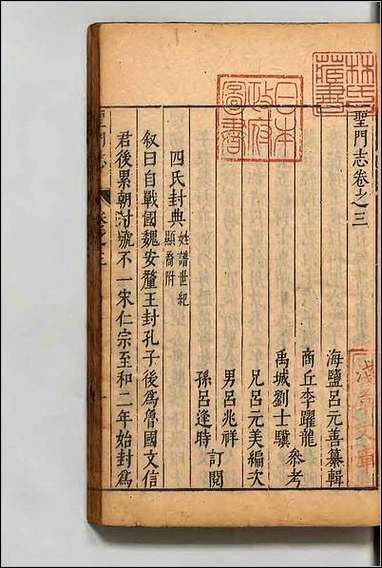 聖門志卷之三
海鹽呂元善纂輯
商丘李躍龍
禹城劉士驥參考
兄呂元美編次
男呂兆祥
孫呂逢時訂閱
四氏封典姓譜世紀顯裔附
叙曰自戰國魏安釐王封孔子後爲魯國文信
君後累朝封號不一宋仁宗至和二年始封爲
聖門志 卷之三
林氏藏書
日本政府圖書
淺草文庫